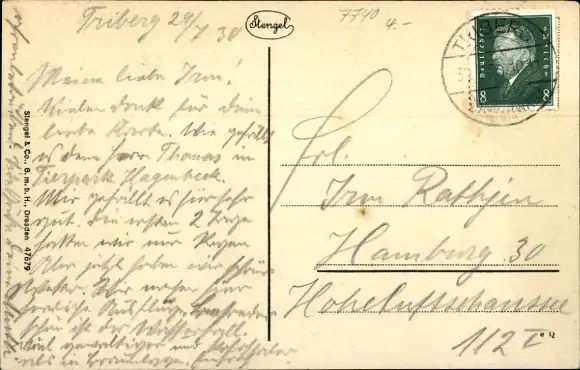 Triberg 29/7 30
Stengel
7740
4.-
Meine liebe Irm!
Vielen Dank für deine
liebe Karte. Wie gefällt
es denn Herr Thomas im
Tierpark Hagenbeck.
Mir gefällt es hier sehr
gut. Die ersten 2 Tage
hatten wir nur Regen
Aber jetzt haben wir schönes
Wetter. Wir machen hier
herrliche Ausflüge. Besonders
schön ist der Wasserfall.
viel gewaltiger und
als in Braunlage.
Stengel & Co., G. m. b. H., Dresden 47679
TRIBERG
Deutsches Reich
8 8
Frl.
Irm Rathjen
Hamburg 30
Hoheluftschaussee
112 I